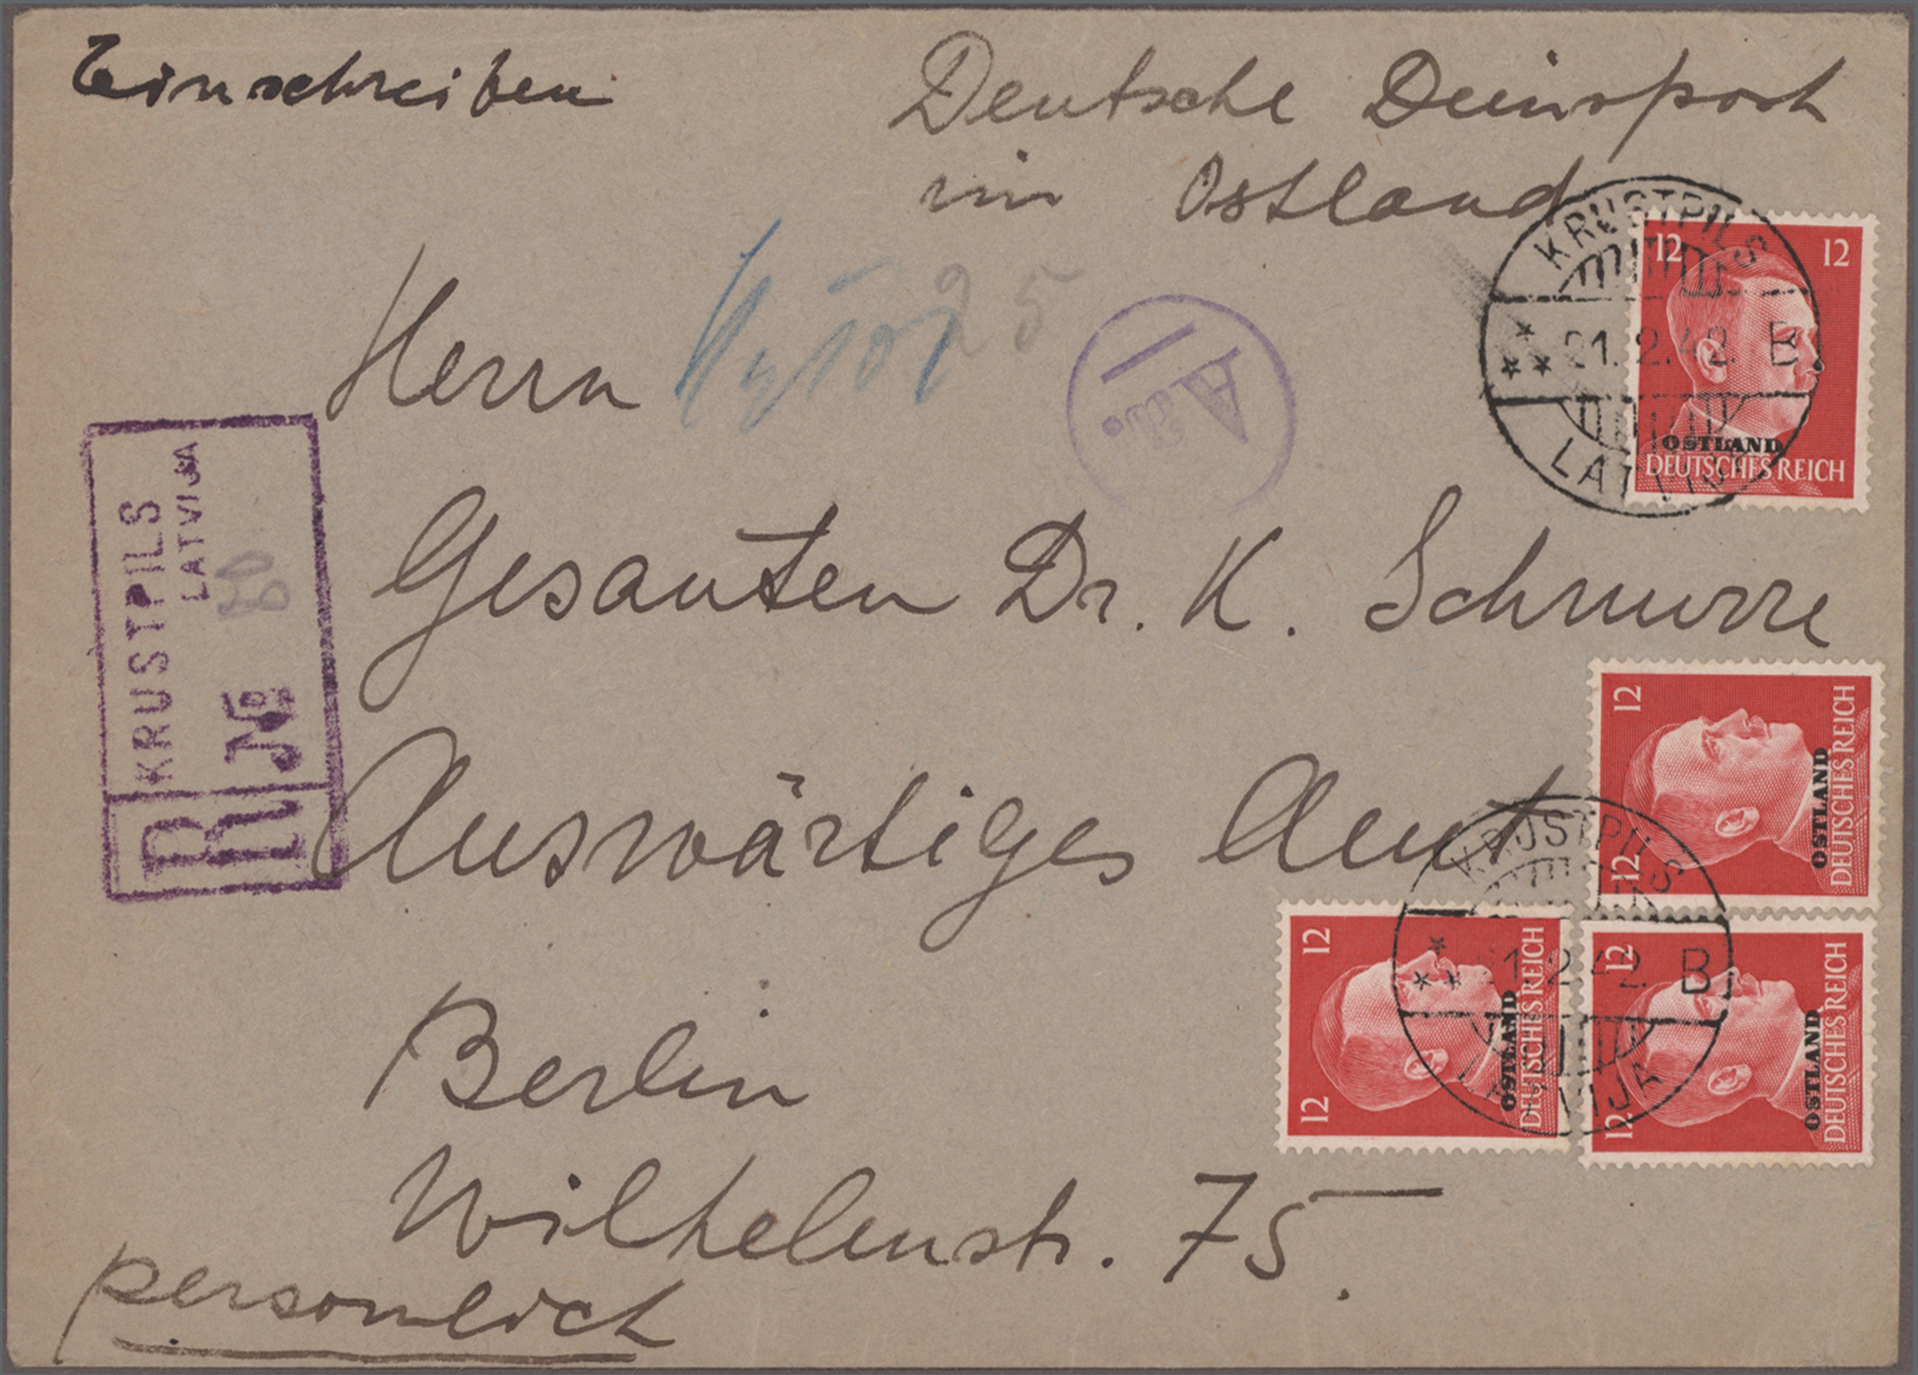 Einschreiben
Deutsche Dienspost
im Ostland
Herrn
25
A
Gesanten Dr. K. Schnurre
Auswärtiges Amt
Berlin
Wilhelmstr. 75.
persomlich
R
KRUSTPILS
LATVIJA
№ 50
KRUSTPILS
21.2.42. B
LATVIJA
12 12
OSTLAND
DEUTSCHES REICH
12 12
OSTLAND
DEUTSCHES REICH
12 12
OSTLAND
DEUTSCHES REICH
12 12
OSTLAND
DEUTSCHES REICH
KRUSTPILS
21.2.42. B
LATVIJA